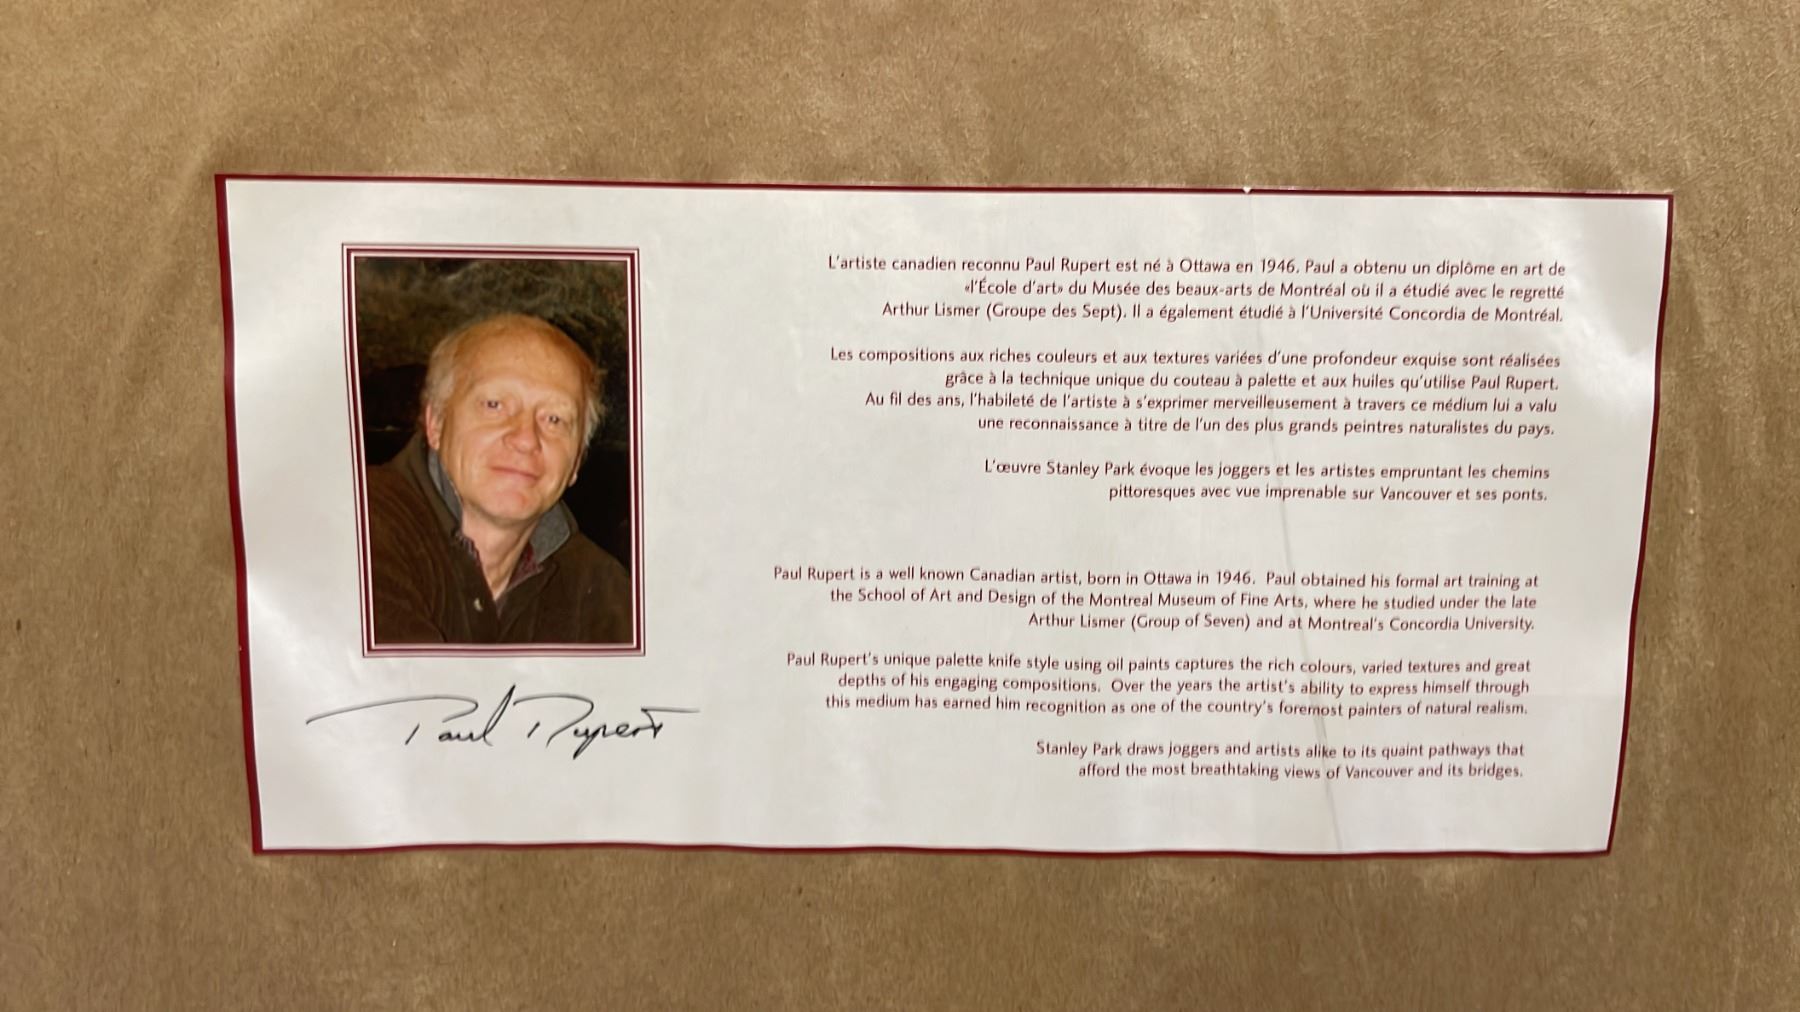 L'artiste canadien reconnu Paul Rupert est né à Ottawa en 1946. Paul a obtenu un diplôme en art de
«l'École d'art» du Musée des beaux-arts de Montréal où il a étudié avec le regretté
Arthur Lismer (Groupe des Sept). Il a également étudié à l'Université Concordia de Montréal.
Les compositions aux riches couleurs et aux textures variées d'une profondeur exquise sont réalisées
grâce à la technique unique du couteau à palette et aux huiles qu'utilise Paul Rupert.
Au fil des ans, l'habileté de l'artiste à s'exprimer merveilleusement à travers ce médium lui a valu
une reconnaissance à titre de l'un des plus grands peintres naturalistes du pays.
L'œuvre Stanley Park évoque les joggers et les artistes empruntant les chemins
pittoresques avec vue imprenable sur Vancouver et ses ponts.
Paul Rupert is a well known Canadian artist, born in Ottawa in 1946. Paul obtained his formal art training at
the School of Art and Design of the Montreal Museum of Fine Arts, where he studied under the late
Arthur Lismer (Group of Seven) and at Montreal's Concordia University.
Paul Rupert's unique palette knife style using oil paints captures the rich colours, varied textures and great
depths of his engaging compositions. Over the years the artist's ability to express himself through
this medium has earned him recognition as one of the country's foremost painters of natural realism.
Stanley Park draws joggers and artists alike to its quaint pathways that
afford the most breathtaking views of Vancouver and its bridges.
Paul Rupert